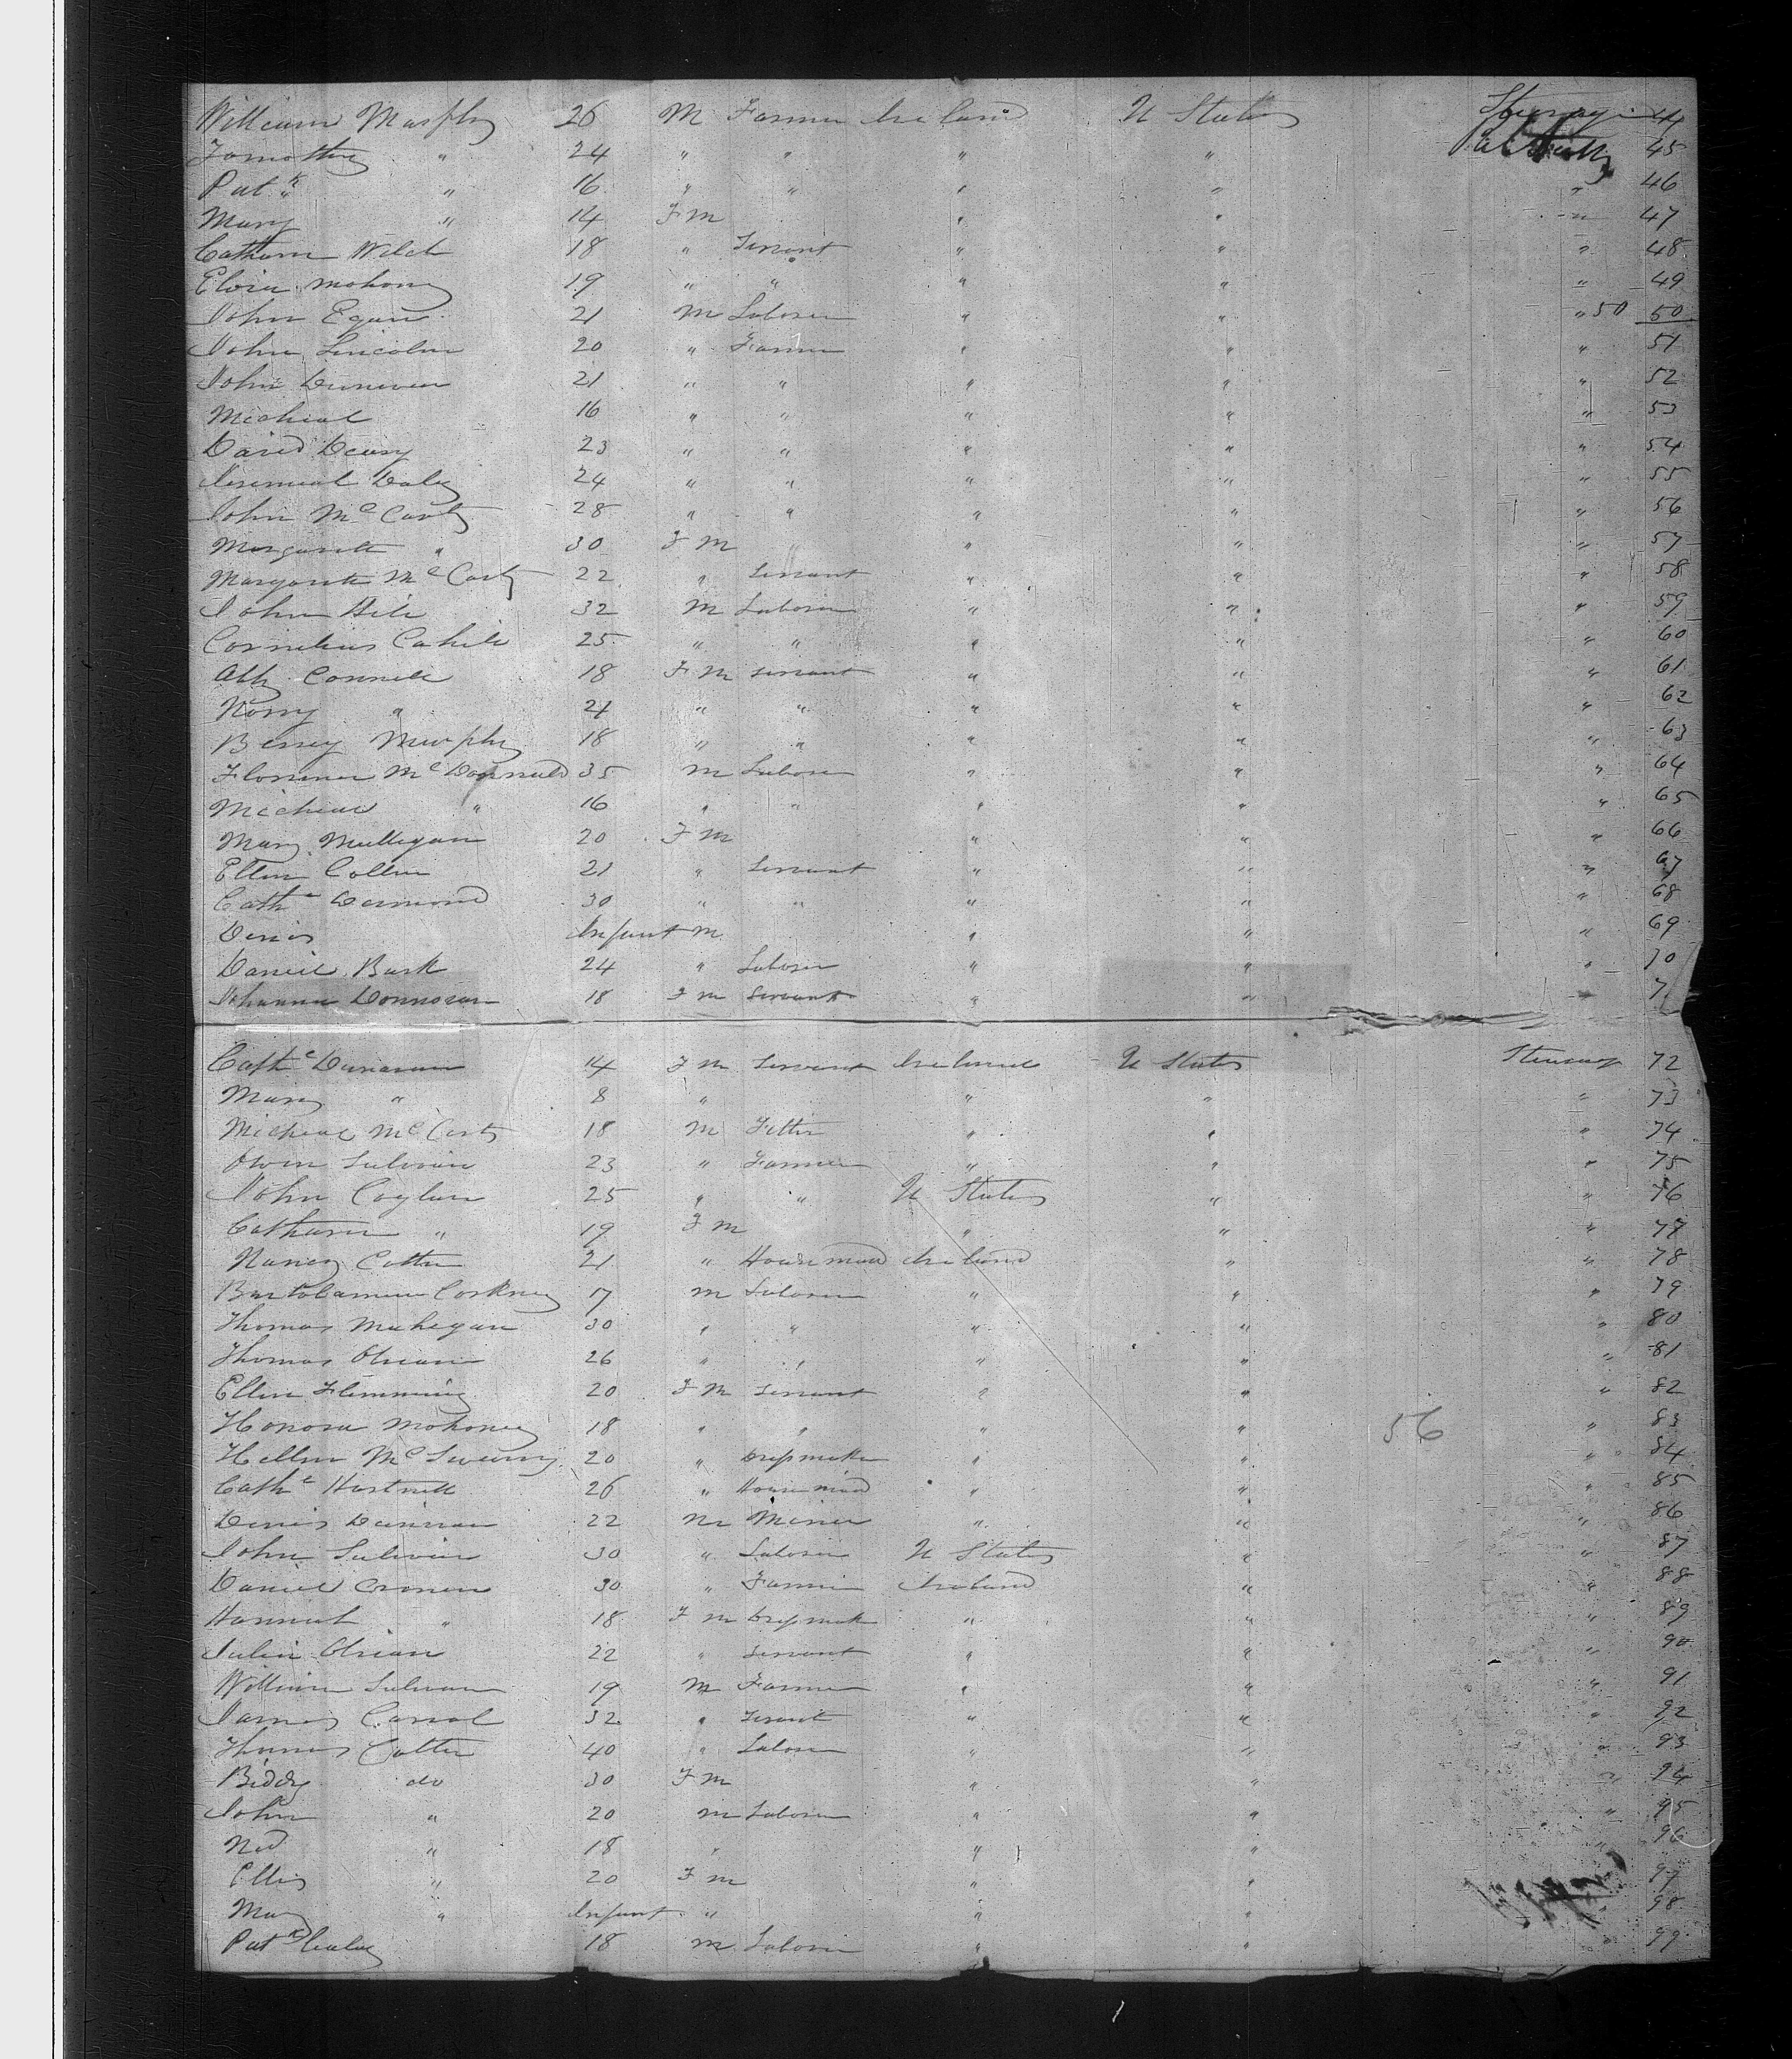 William Murphy 26 M Farmer Ireland U States Steerage 44
Tomothy " 24 " " " " 45
Patk " 16 " " " " " 46
Mary " 14 F M " " " 47
Catharn Welch 18 " Servant " " " 48
Eloiza Mahony 19 " " " " " 49
John Egan 21 M Laborer " " " 50 50
John Lincoln 20 " Farmer " " " 51
John Dunevan 21 " " " " " 52
Micheal 16 " " " " " 53
David Deary 23 " " " " " 54
Jeremiah Daley 24 " " " " " 55
John McCarty 28 " " " " " 56
Margarett " 30 F M " " " 57
Margarett McCarty 22 " Servant " " " 58
John Hile 32 M Laborer " " " 59
Cornelius Cahile 25 " " " " " 60
Abby Connell 18 F M servant " " " 61
Norry " 21 " " " " " 62
Bessey Murphy 18 " " " " " 63
Florence McDonnald 35 M Laborer " " " 64
Micheal " 16 " " " " " 65
Mary Mulligan 20 F M " " " 66
Ellen Collin 21 " Servant " " " 67
Cathe Dermond 30 " " " " " 68
Denis Infant M " " " 69
Daniel Burk 24 " Laborer " " " 70
Johanna Donnovan 18 F M Servant " " " 71
Cathe Dunavan 14 F M Servant Ireland U States Steerage 72
Mary " 8 " " " " 73
Micheal McCarty 18 M Fitter " " " 74
Owen Sulivan 23 " Farmer " " " 75
John Coylan 25 " " U States " " 76
Catharin " 19 F M " " " 77
Nancy Cotter 21 " Housemaid Ireland " " 78
Bartolamew Corkney 17 M Laborer " " " 79
Thomas Mahegan 30 " " " " " 80
Thomas Obrian 26 " " " " " 81
Ellen Flimming 20 F M Servant " " " 82
Honora Mohoney 18 " " " " 56 " 83
Hellen McSweeny 20 " Dressmaker " " " 84
Cathe Hartnett 26 " Housemaid " " " 85
Denis Dunivan 22 M Miner " " " 86
John Sulivan 30 " Laborer U States " " 87
Daniel Cronen 30 " Farmer Ireland " " 88
Hannah " 18 F M Dressmak " " " 89
Julia Obrian 22 " servant " " " 90
William Sulivan 19 M Farmer " " " 91
James Carrol 32 " Servant " " " 92
Thomas Cotter 40 " Laborer " " " 93
Biddy do 30 F M " " " 94
John " 20 M Laborer " " " 95
Ned " 18 " " " " 96
Ellis " 20 F M " " " 97
Mary " Infant " " " " 98
Patk Caley 18 M Laborer " " " 99